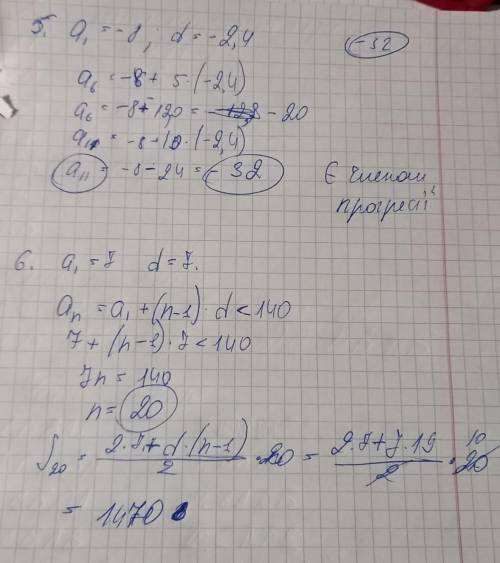 5. a₁ = -8; d = -2,4
-32
a₆ = -8 + 5·(-2,4)
a₆ = -8 + 12,0 = - 20
a₁₁ = -8 + 10·(-2,4)
a₁₁ = -8 - 24 = -32
Є членом
прогресії
6. a₁ = 7 d = 7.
aₙ = a₁ + (n-1)·d < 140
7 + (n-1)·7 < 140
7n = 140
n = 20
S₂₀ = (2·7 + d·(n-1))/2 · 20 = (2·7 + 7·19)/2 · 20 10
= 1470